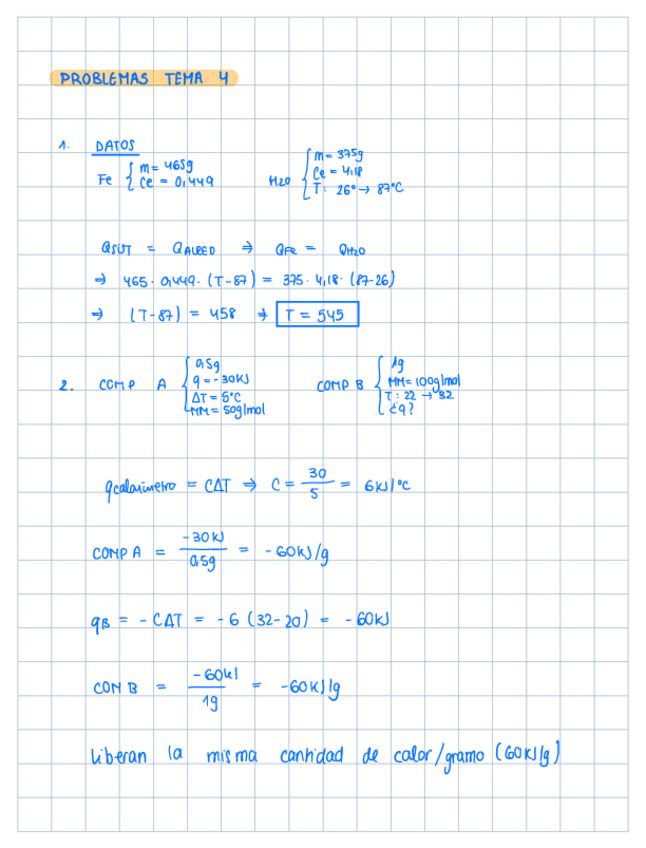 PROBLEMAS TEMA 4
1. DATOS
Fe { m = 465g
Ce = 0,449
H2O { m = 375g
Ce = 4,18
T: 26° → 87°C
⇒ QFe = QH2O
⇒ 465 · 0,449 · (T-87) = 375 · 4,18 · (87-26)
⇒ (T-87) = 458 ⇒ T = 545
2. COMP A { 0,5g
q = -30KJ
ΔT = 5°C
MM = 50g/mol
COMP B { 1g
MM = 100g/mol
T: 22 → 32
¿q?
qcalorimetro = CΔT ⇒ C = 30/5 = 6KJ/°C
COMP A = -30KJ/0,5g = -60KJ/g
qB = - CΔT = -6 (32-20) = -60KJ
COM B = -60KJ/1g = -60KJ/g
Liberan la misma cantidad de calor/gramo (60KJ/g)